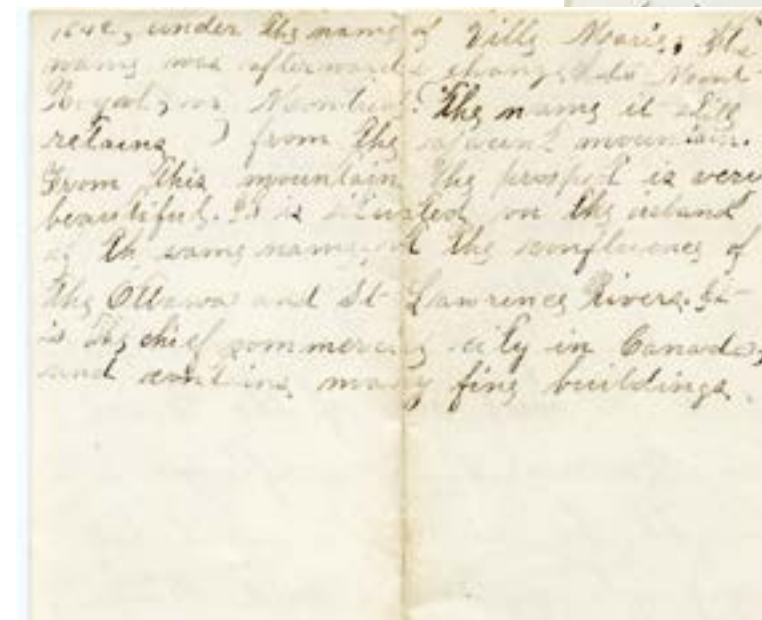 1642, under the name of Ville Marie. Its
name was afterwards changed to Mont
Royal, or Montreal (The name it still
retains ) from the adjacent mountain.
From this mountain the prospect is very
beautiful. It is situated on the island
of the same name, at the confluence of
the Ottawa and St Lawrence Rivers. It
is the chief commercial city in Canada,
and contains many fine buildings.